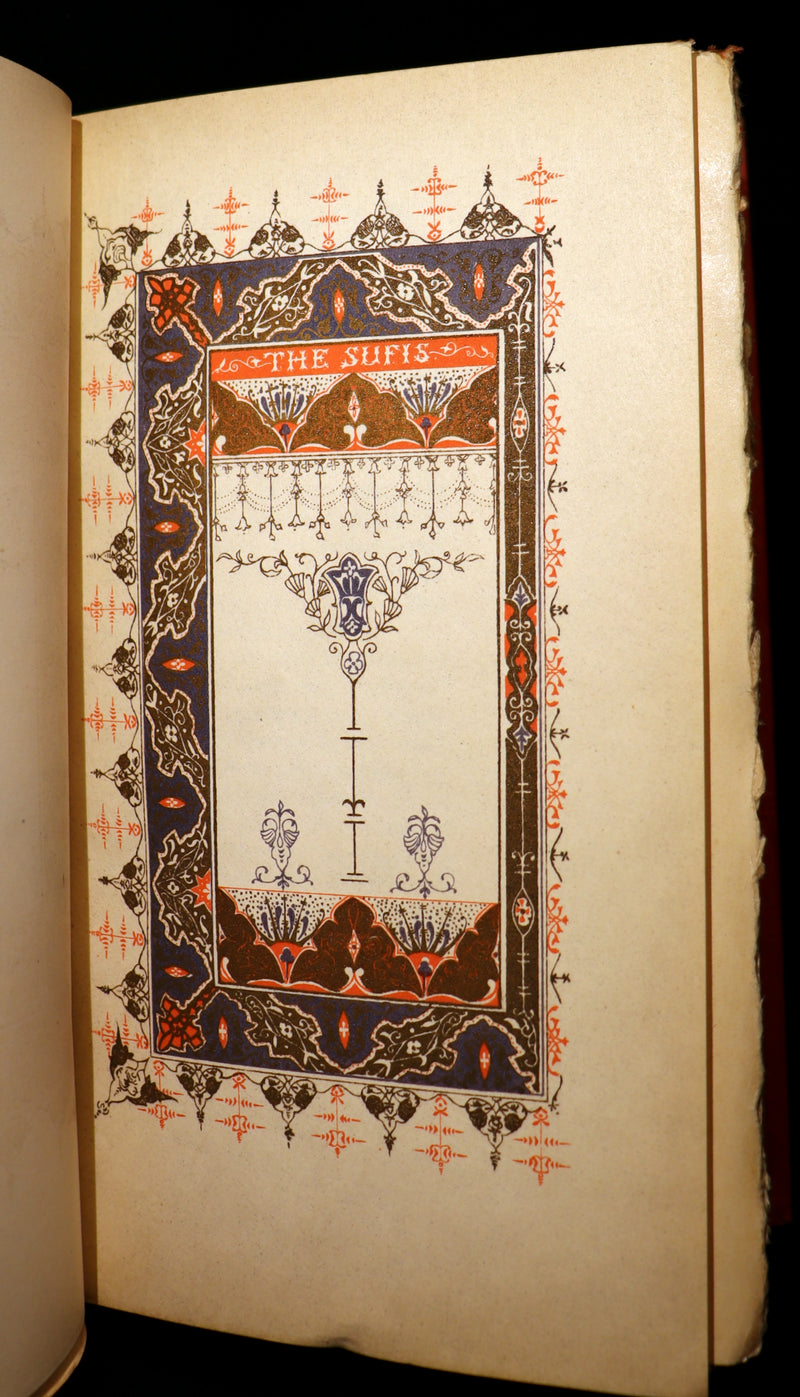 THE SUFIS